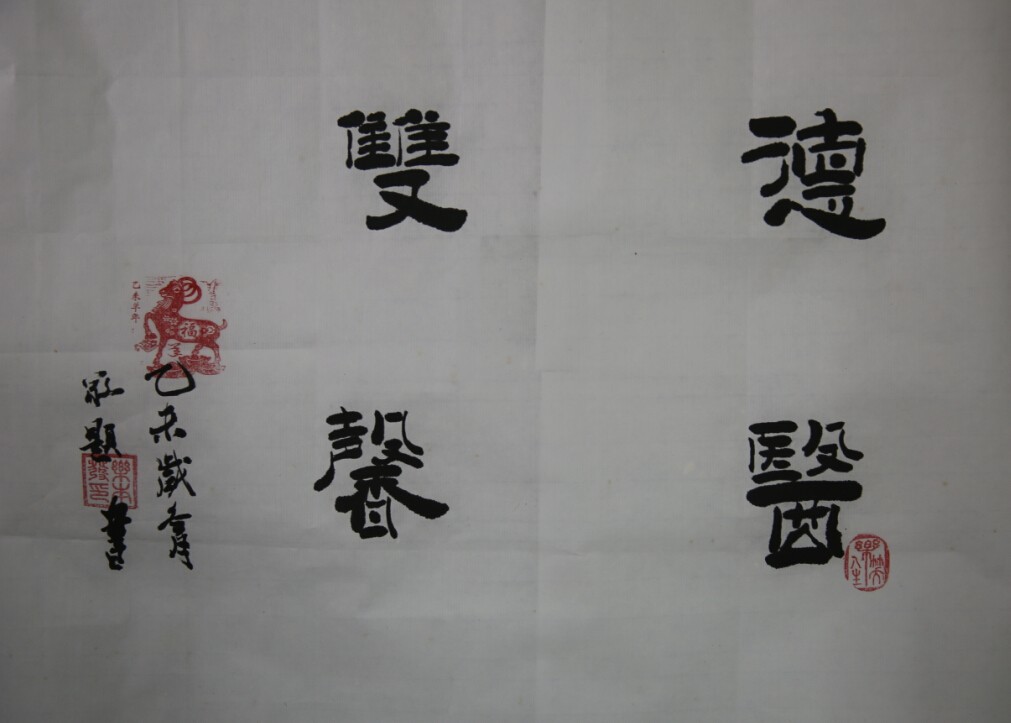 德醫
雙馨
乙未歲
題
書
乙未羊年
福